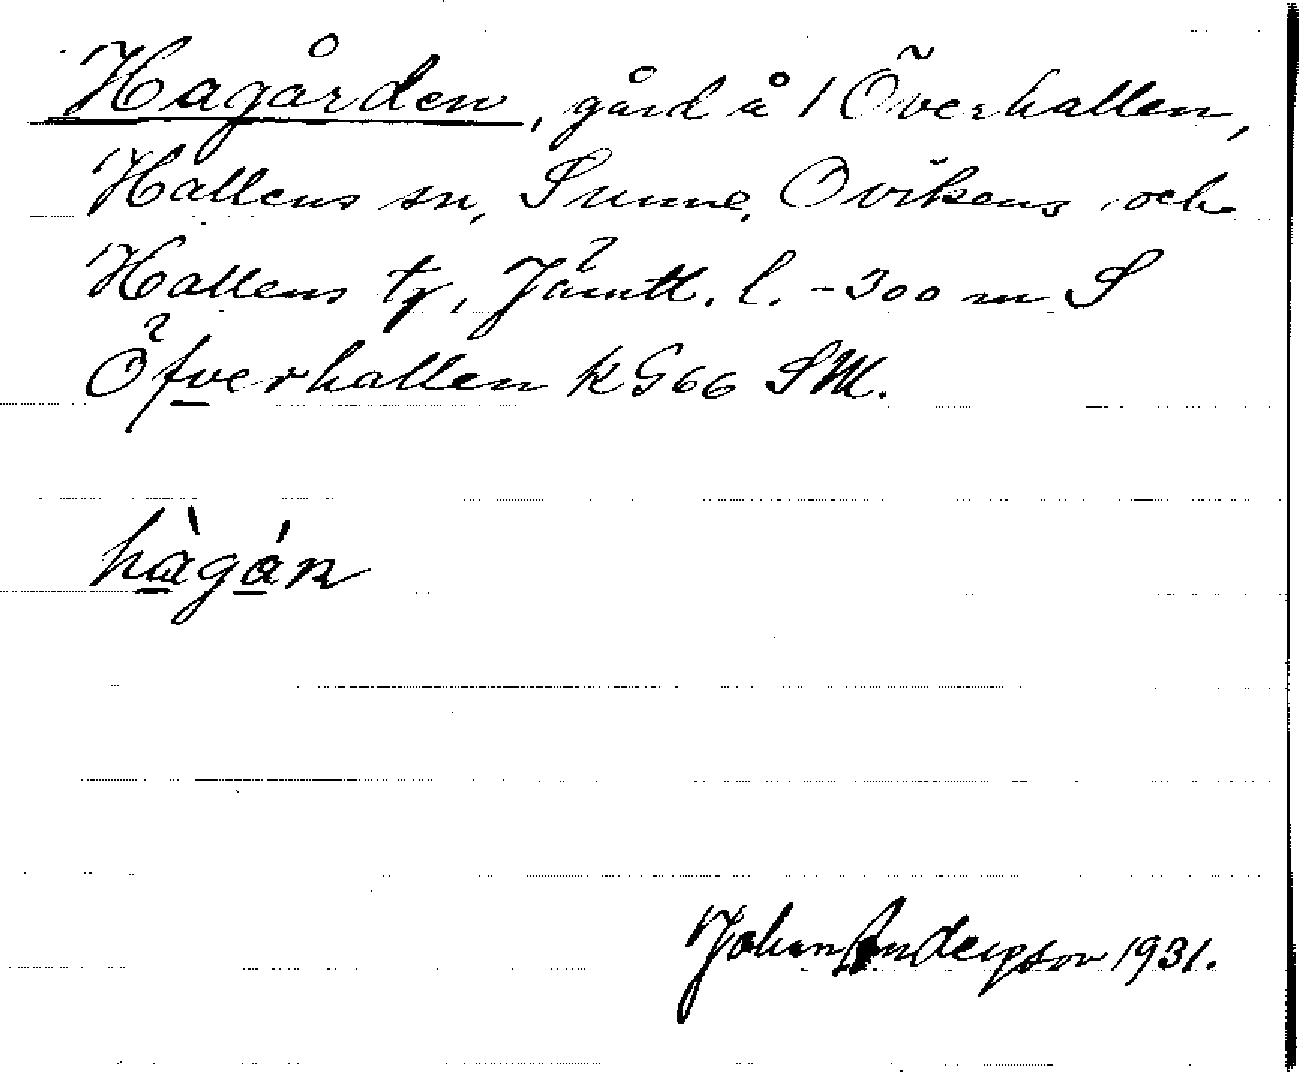 Hagården, gård å 1 Överhallen,
Hallens sn, Sunne, Ovikens och
Hallens tg, Jämtl. l. - 300 m S
Öfverhallen k G66 SM.
hàgán
Johan Anderpson 1931.